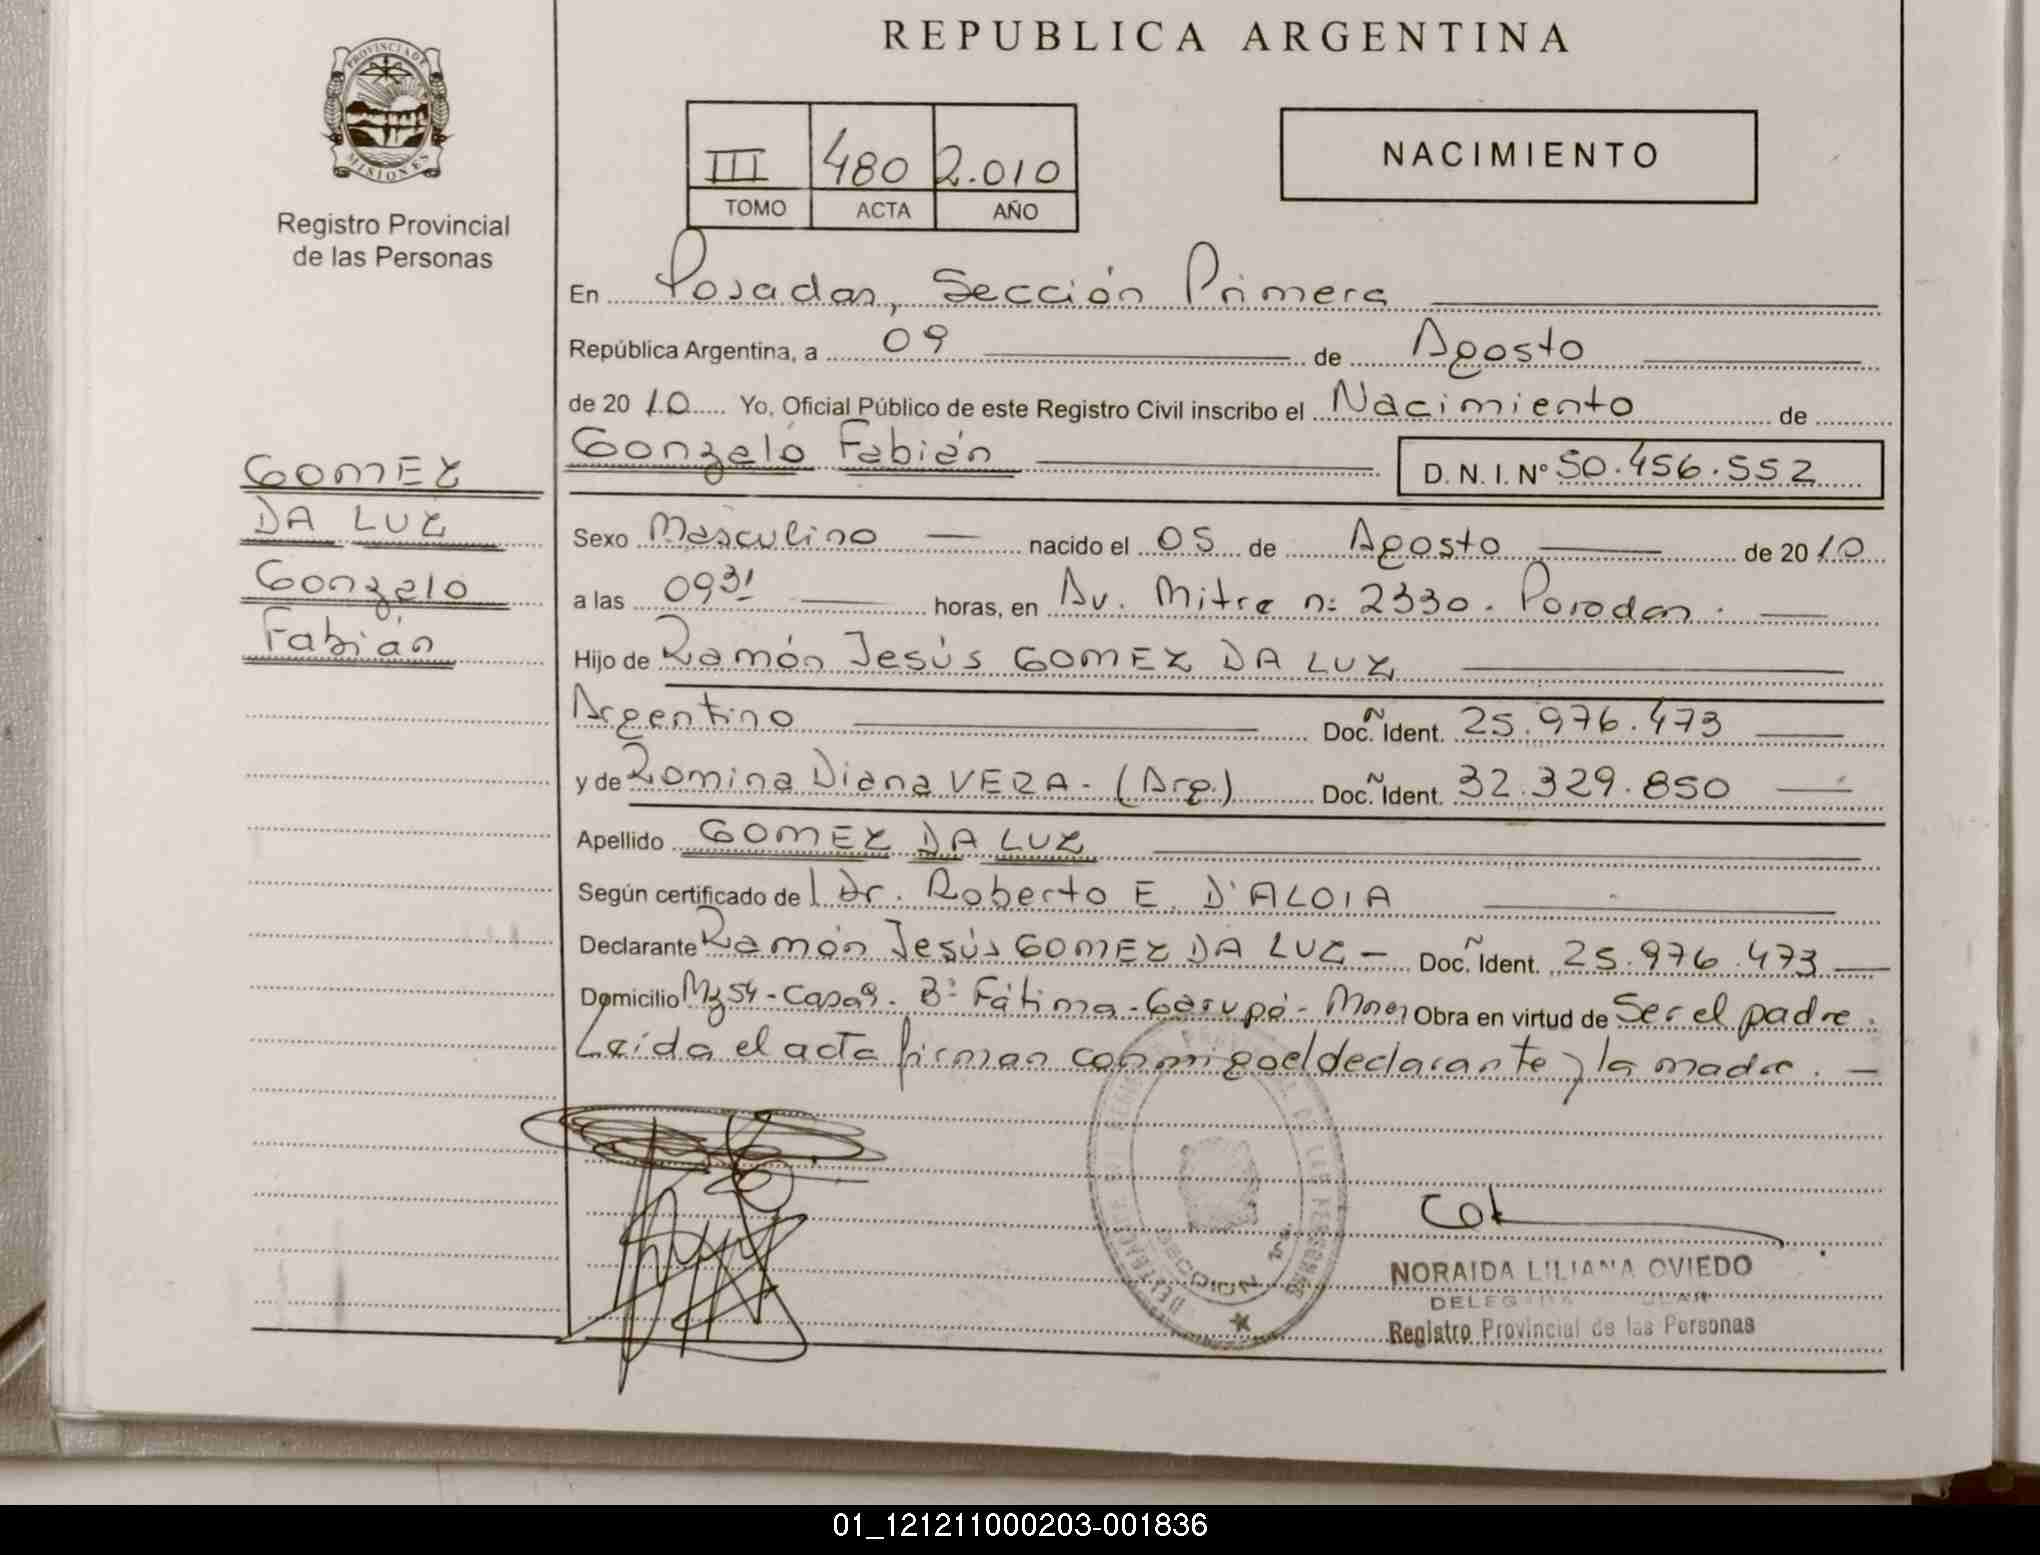 REPUBLICA ARGENTINA
PROVINCIA DE
MISIONES
Registro Provincial
de las Personas
III 480 2.010
TOMO ACTA AÑO
NACIMIENTO
En Posadas, Sección Primera
República Argentina, a 09 de Agosto
de 2010 Yo, Oficial Público de este Registro Civil inscribo el Nacimiento de
Gonzalo Fabián D. N. I. Nº 50.456.552
GOMEZ
DA LUZ
Gonzalo
Fabián
Sexo Masculino nacido el 05 de Agosto de 2010
a las 0931 horas, en Av. Mitre nº 2330. Posadas.
Hijo de Ramón Jesús GOMEZ DA LUZ
Argentino Doc. Ident. 25.976.473
y de Romina Diana VERA - (Arg.) Doc. Ident. 32.329.850
Apellido GOMEZ DA LUZ
Según certificado de l Dr. Roberto E. D'ALOIA
Declarante Ramón Jesús GOMEZ DA LUZ - Doc. Ident. 25.976.473
Domicilio Mz 54 - Casa 9 - Bº Fátima - Garupá - Mnes Obra en virtud de Ser el padre.
Leída el acta firman conmigo el declarante y la madre. -
SECCION 1ª
NORAIDA LILIANA OVIEDO
Registro Provincial de las Personas
01_121211000203-001836